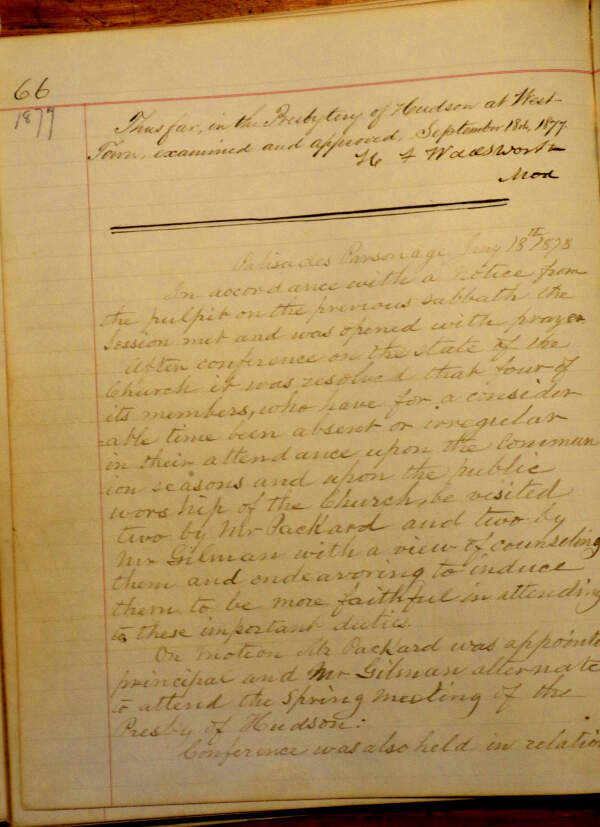 66
1877
Thus far, in the Presbytery of Hudson at West-
Town, examined and approved, September 18th, 1877.
H A Wadsworth
Mod
Palisades Parsonage Jany 18th 1878
In accordance with a Notice from
the pulpit on the previous sabbath the
Session met and was opened with prayer
After conference on the state of the
Church it was resolved that four of
its members, who have for a consider
-able time been absent or irregular
in their attendance upon the Commun
-ion seasons and upon the public
worship of the Church, be visited
two by Mr Packard and two by
Mr Gilman with a view of counseling
them and endeavoring to induce
them to be more faithful in attending
to these important duties.
On motion Mr Packard was appointe
principal and Mr Gilman alternate
to attend the Spring meeting of the
Presby of Hudson:
Conference was also held in relation